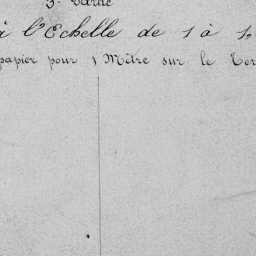 à l'Echelle de 1 à 1.
papier pour 1 Mètre sur le Ter